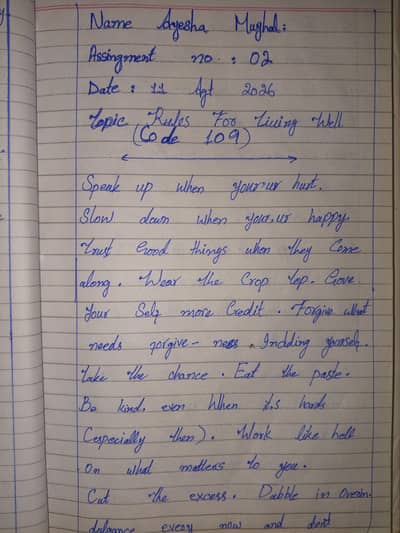 Name Ayesha Mughal:
Assingment no : 02
Date : 11 Agt 2026
Topic Rules For Living Well
(Code 109)
Speak up when your'ur hurt.
Slow down when your.ur happy.
Trust Good things when they Come
along. Wear the Crop top. Gove
Your Self more Credit. Forgive what
needs forgive-ness. Inclding yourself.
Take the chance. Eat the paste.
Be kind, even When it,s hards
(especially then). Work like hell
On what matteas to you.
Cut the excess. Dabble in Overin-
dulgance every now and dont